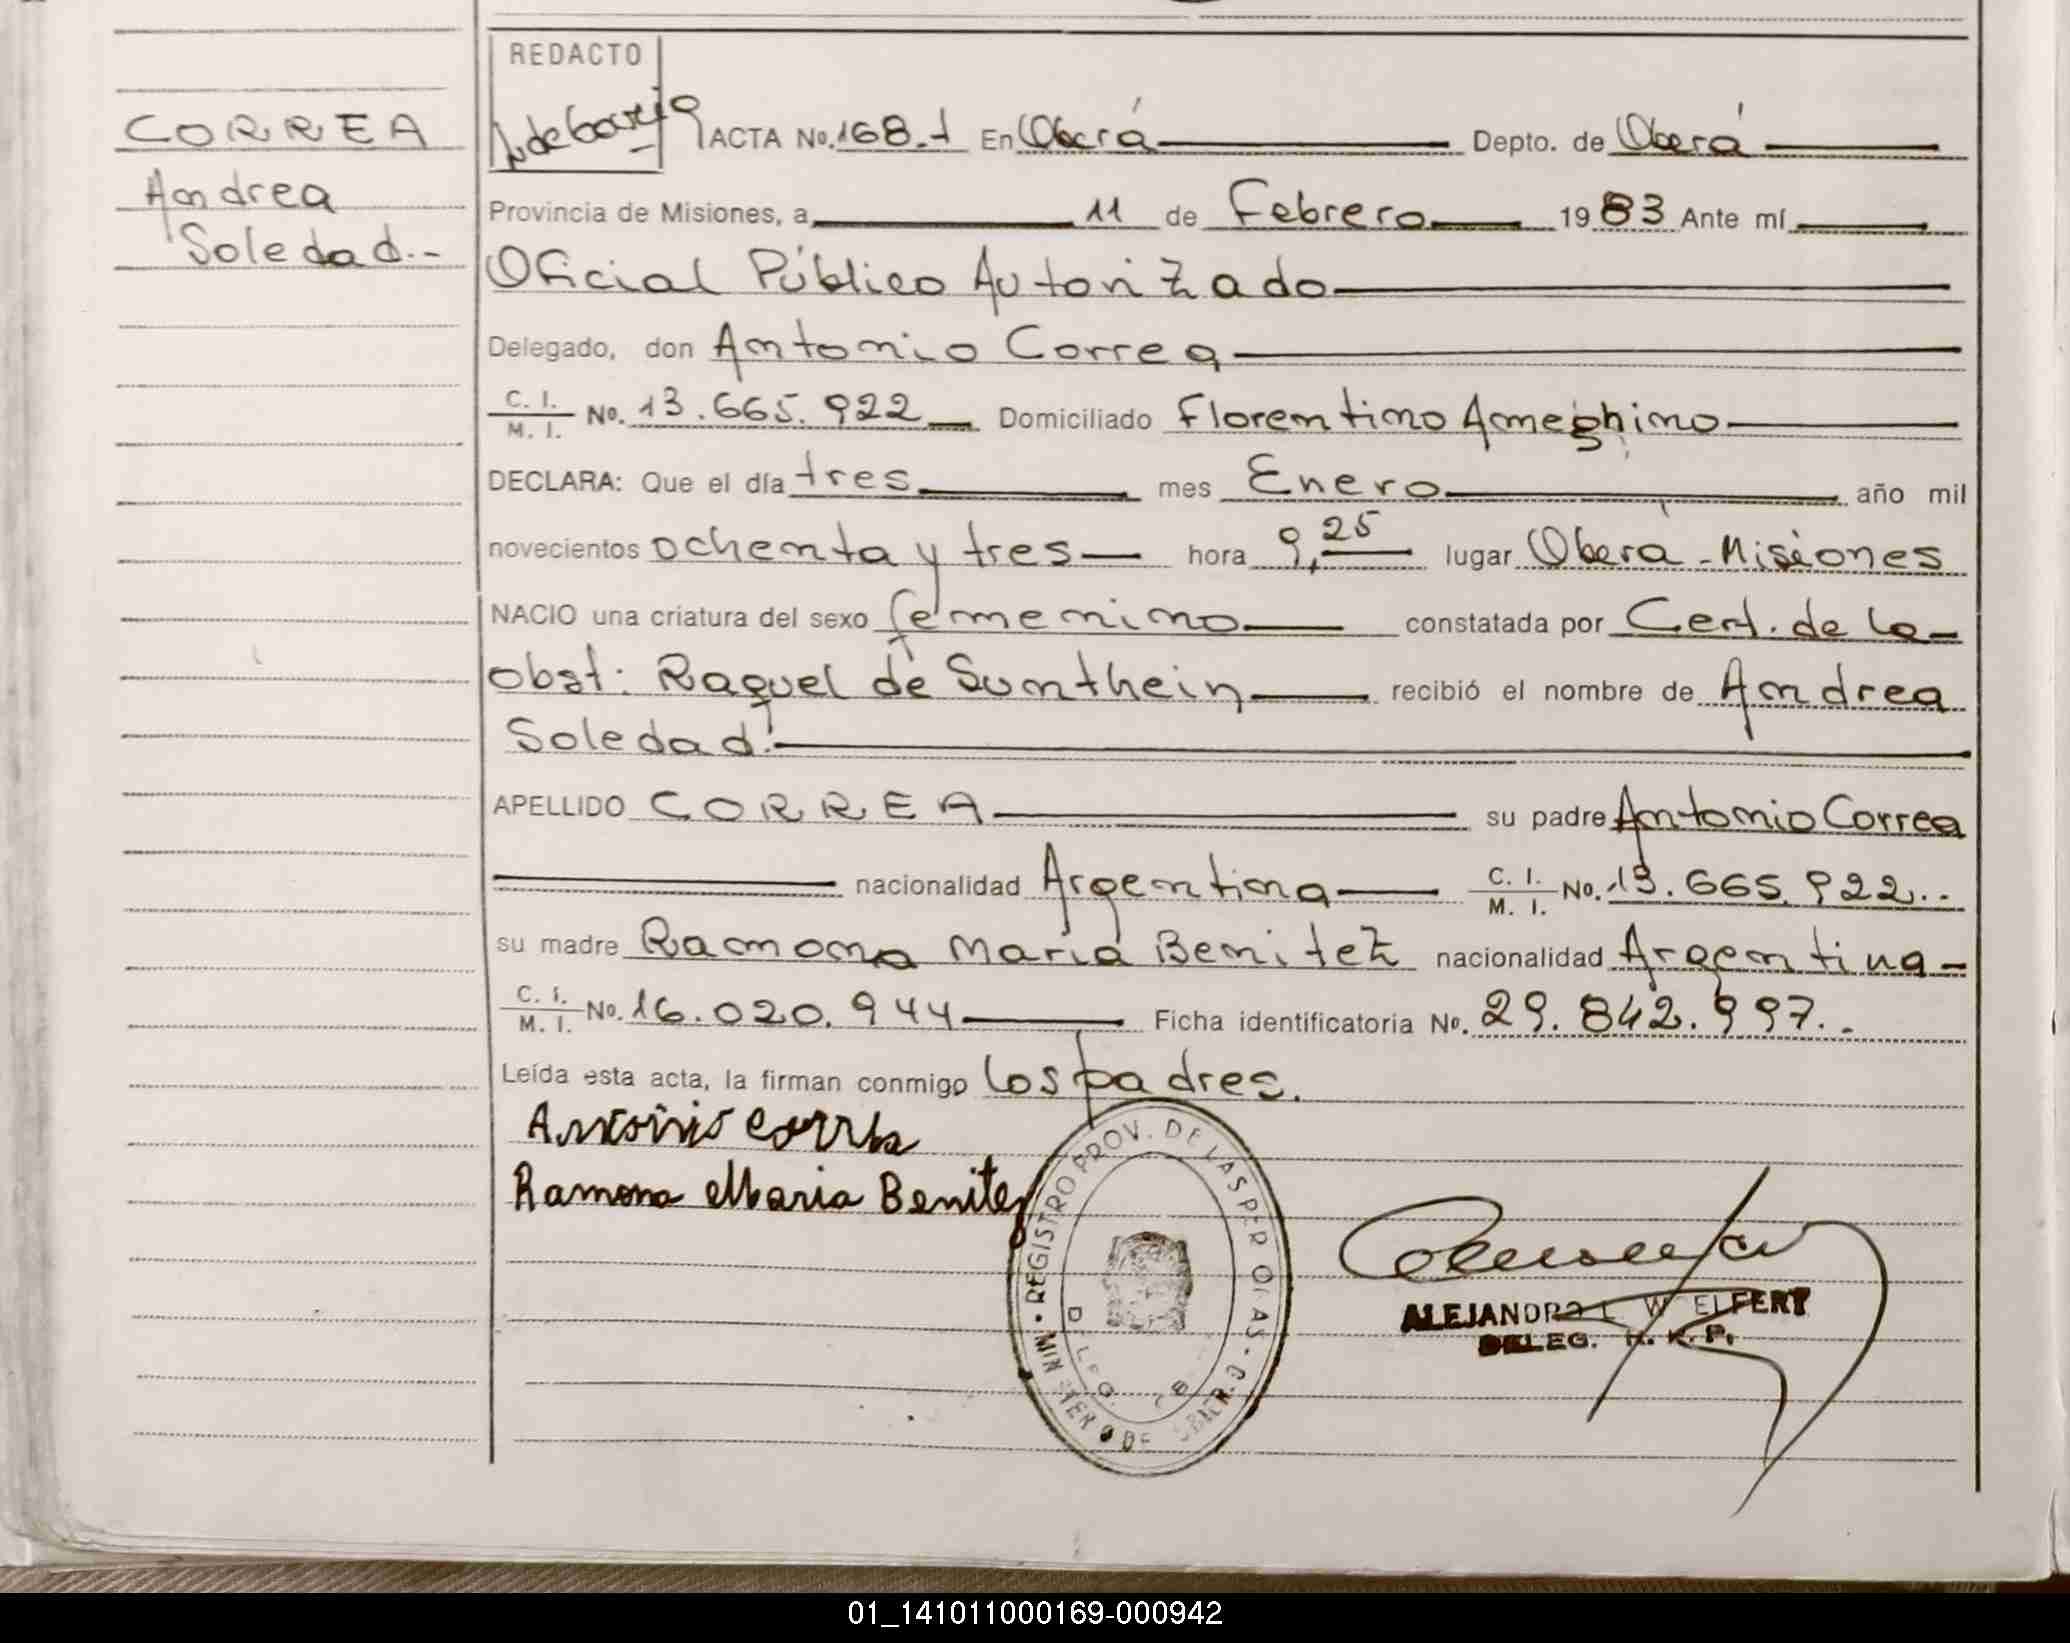 CORREA
Andrea
Soledad.-
REDACTO
ACTA No. 168.t En Oberá Depto. de Oberá
Provincia de Misiones, a 11 de Febrero 1983 Ante mí
Oficial Público Autorizado
Delegado, don Antonio Correa
C. I. / M. I. No. 13.665.922 Domiciliado Florentino Ameghino
DECLARA: Que el día tres mes Enero año mil
novecientos ochenta y tres hora 9,25 lugar Oberá - Misiones
NACIO una criatura del sexo femenino constatada por Cert. de la
obst: Raquel de Sunthein recibió el nombre de Andrea
Soledad.-
APELLIDO CORREA su padre Antonio Correa
nacionalidad Argentina C. I. / M. I. No. 13.665.922..
su madre Ramona María Benitez nacionalidad Argentina
C. I. / M. I. No. 16.020.944 Ficha identificatoria No. 29.842.997..
Leída esta acta, la firman conmigo los padres.
Antonio Correa
Ramona Maria Benitez
REGISTRO PROV. DE LAS PERSONAS - MINISTERIO DE GOBIERNO
ALEJANDRO L W ELFERT
DELEG. R. K. P.
01_141011000169-000942